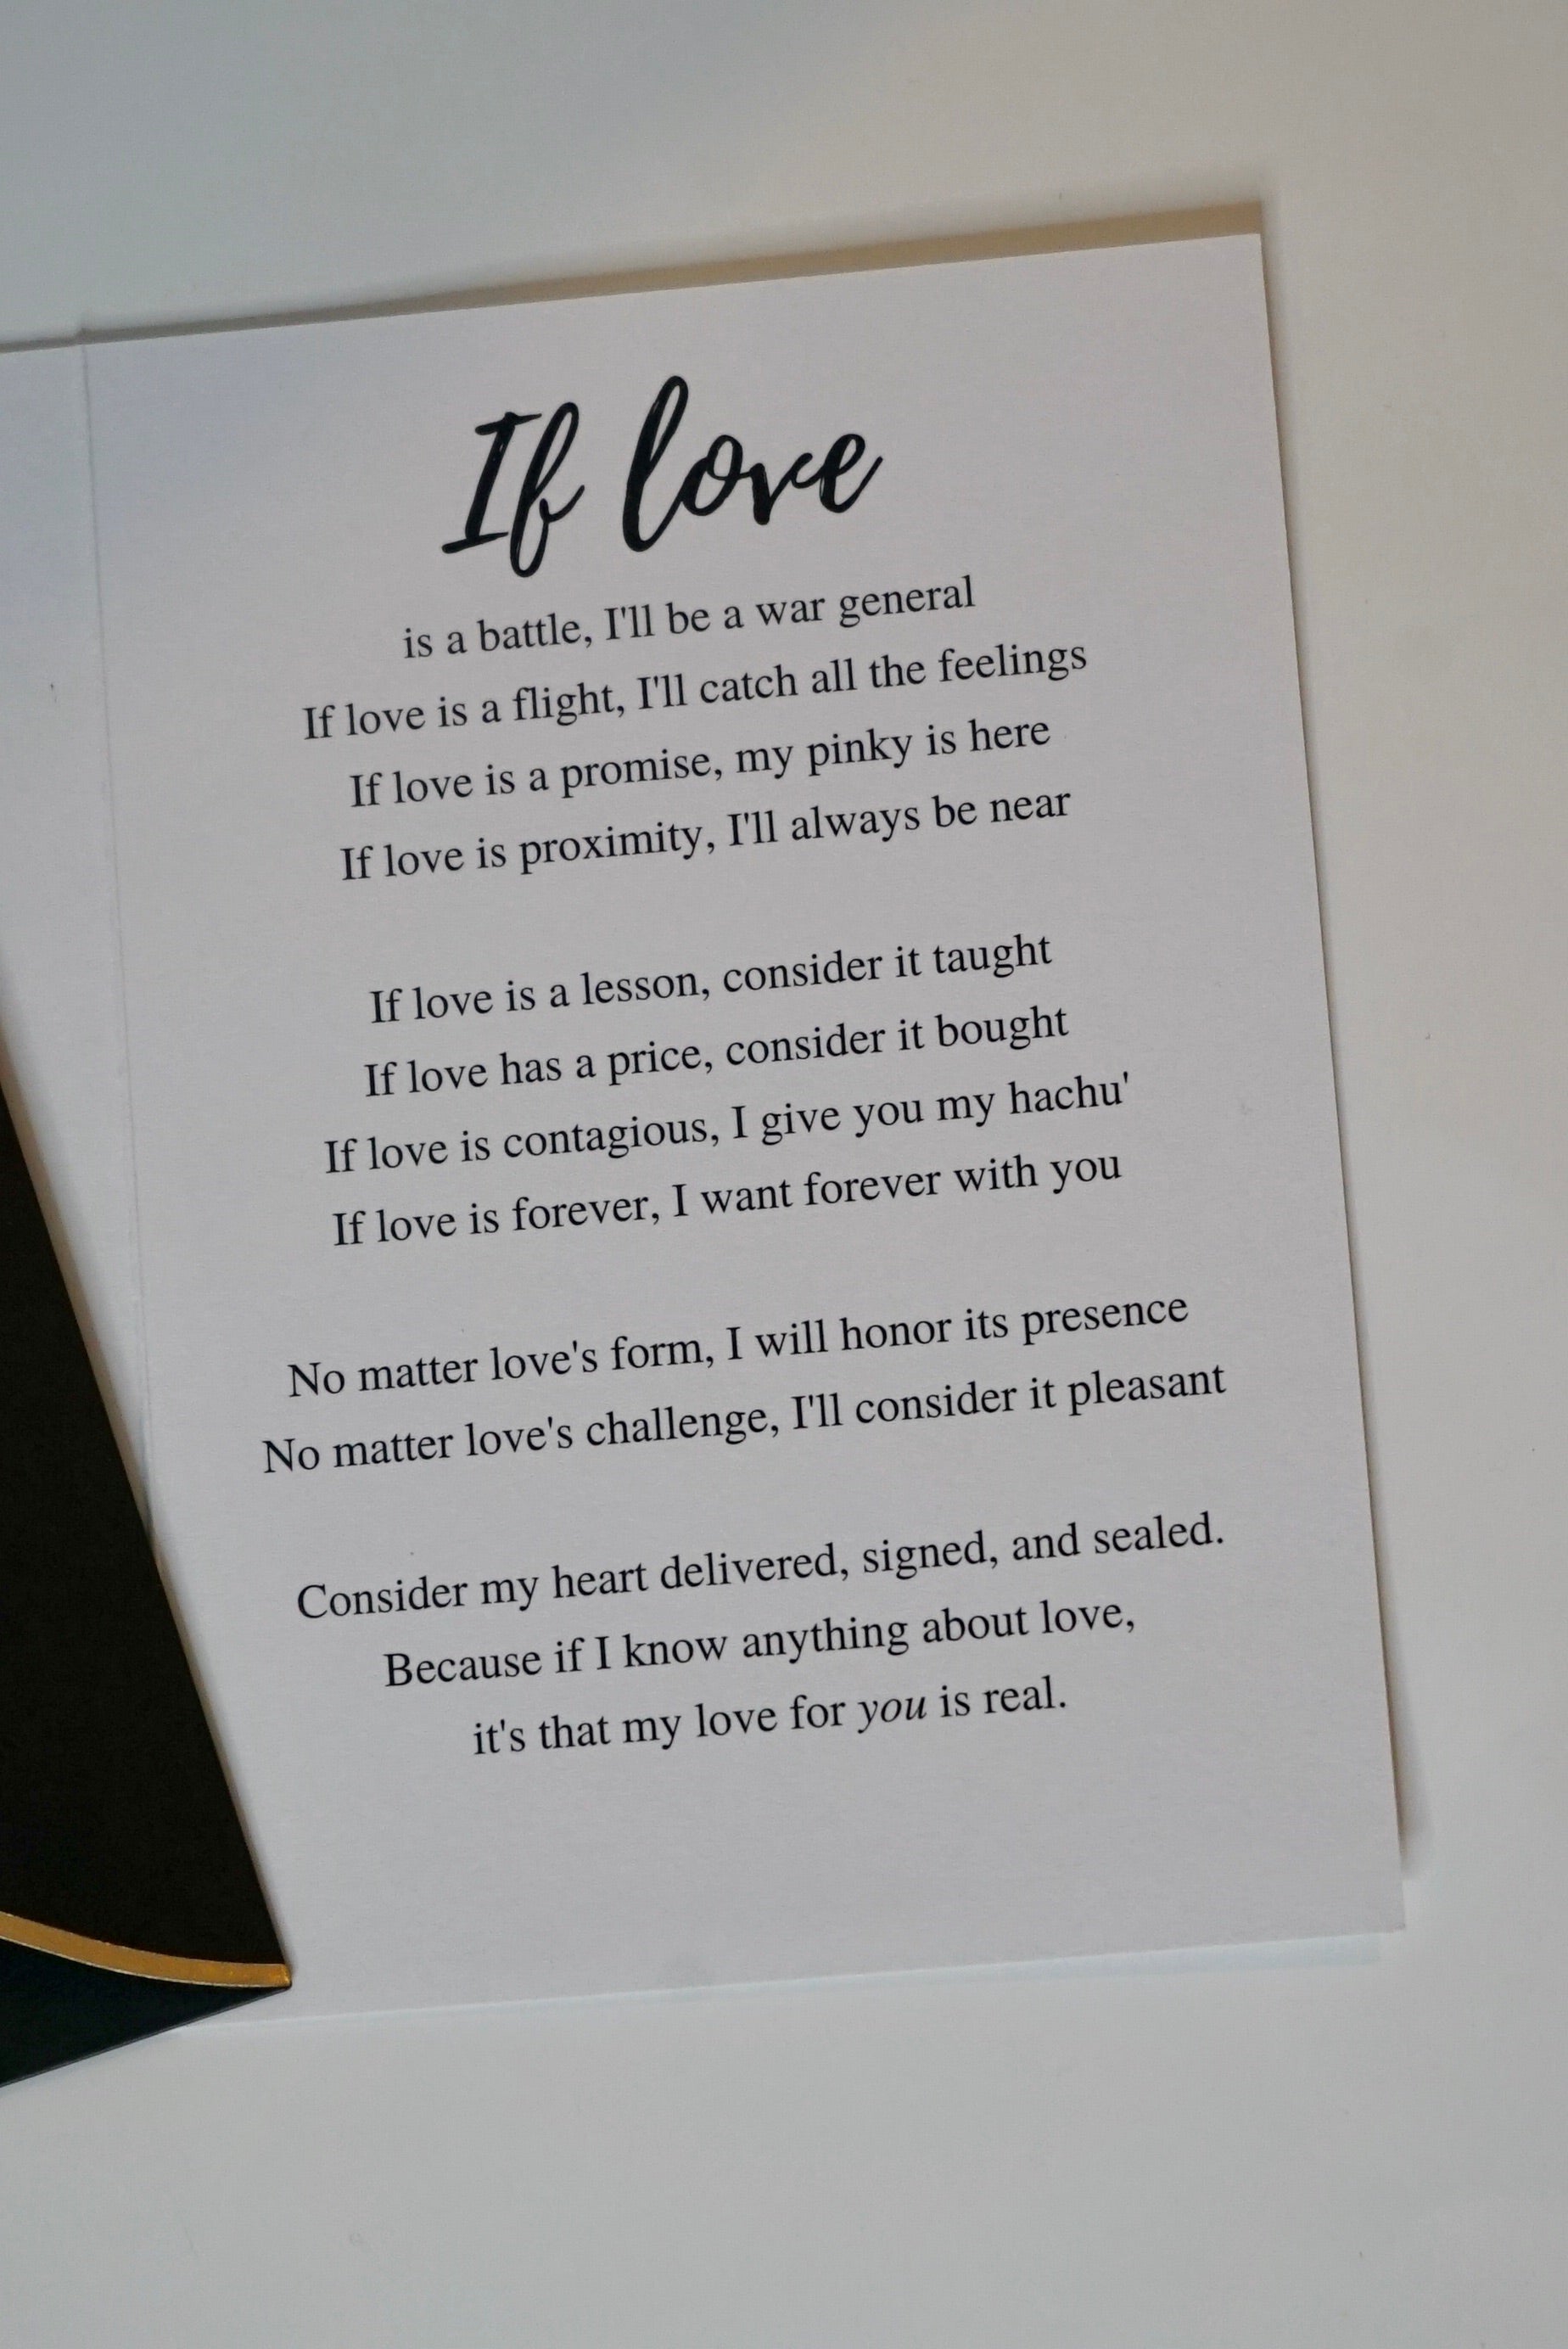 If love
is a battle, I'll be a war general
If love is a flight, I'll catch all the feelings
If love is a promise, my pinky is here
If love is proximity, I'll always be near
If love is a lesson, consider it taught
If love has a price, consider it bought
If love is contagious, I give you my hachu'
If love is forever, I want forever with you
No matter love's form, I will honor its presence
No matter love's challenge, I'll consider it pleasant
Consider my heart delivered, signed, and sealed.
Because if I know anything about love,
it's that my love for you is real.